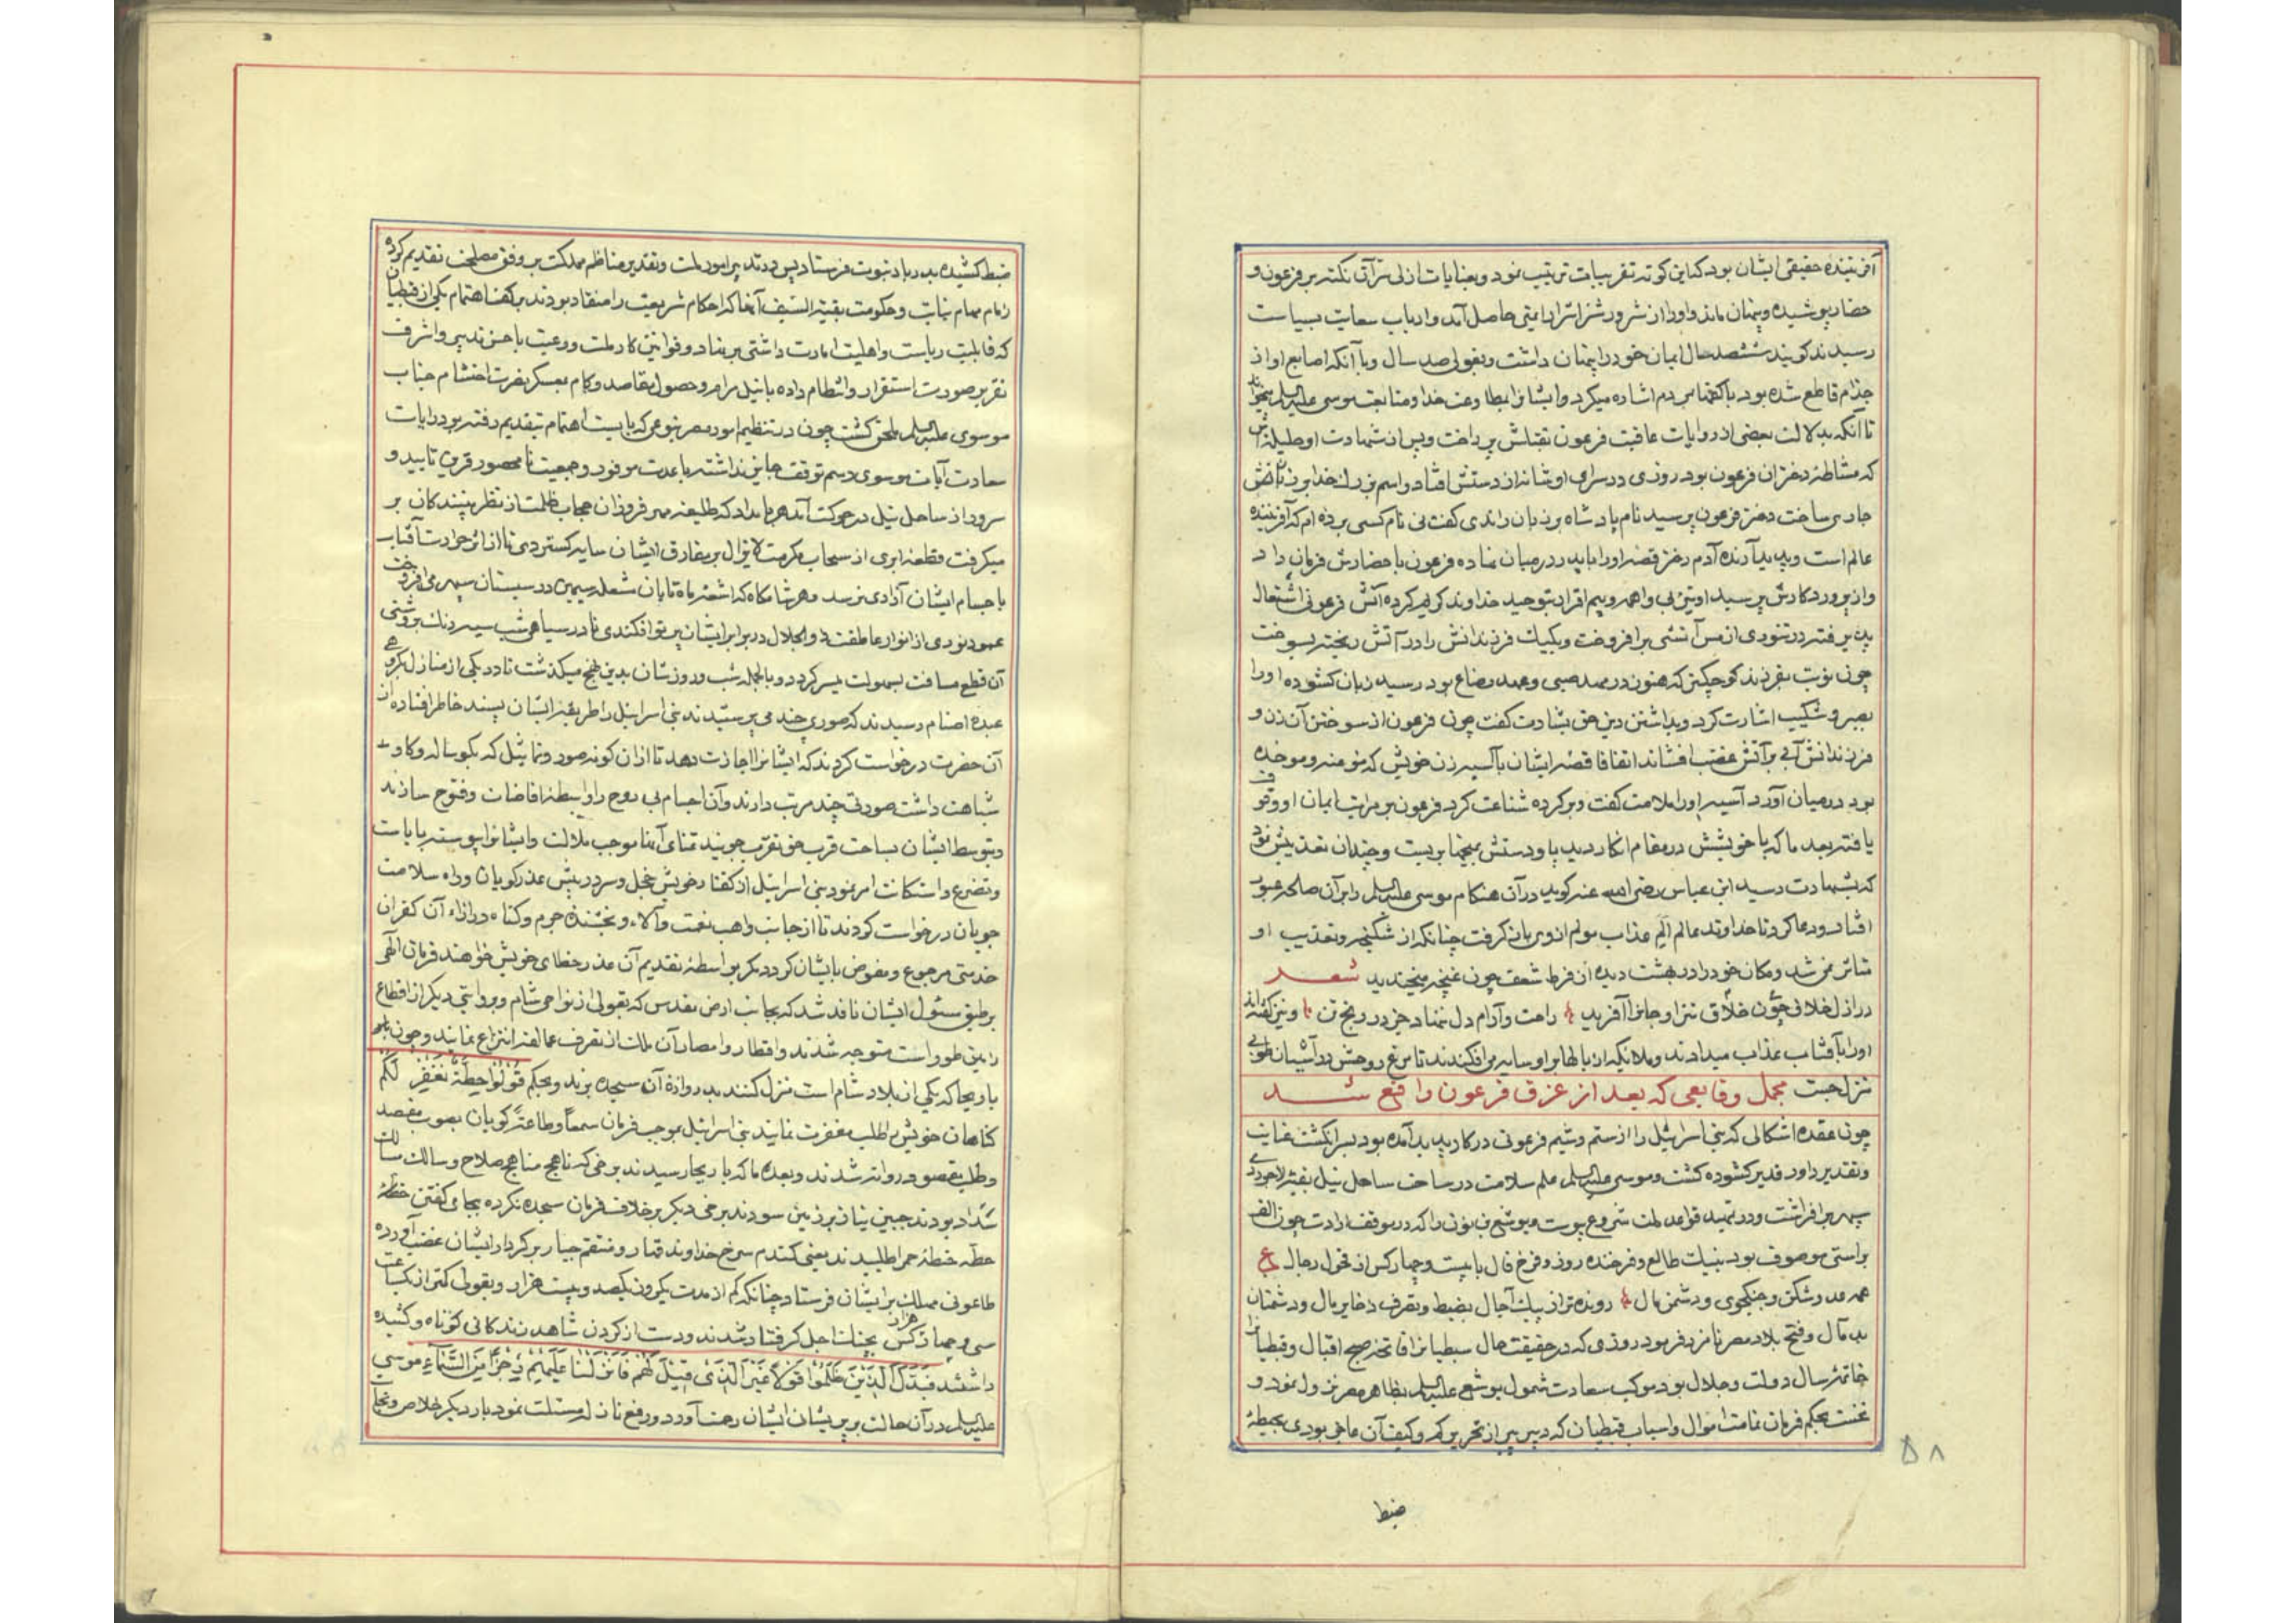 آفریننده حقیقی ایشان بود کناین کونه تقریبات ترتیب نمود وبعنایات ازلی نکته بر فرعون و
حضار پوشیده وپنهان ماند واورا از شرور شر ایمنی حاصل آمد وارباب سعایت بسیاست
رسیدند کویند ششصد سال ایمان خود را پنهان داشت وبقولی صد سال وبا آنکه اصابع او از
جذام قاطع شده بود با مردم اشاره میکرد وایشانرا بطاعت خدا ومتابعت موسی علیه السلم میخواند
تا آنکه بدلالت بعضی از روایات عاقبت فرعون بقتلش پرداخت وپس از شهادت او
که مشاطه دختران فرعون بود روزی در سرای او شانه از دستش افتاد واسم بزرك خدا بر زبانش
جاری ساخت دختر فرعون پرسید نام پادشاه بر زبان راندی کفت نی نام کسی برده ام که آفریننده
عالم است وپدید آرنده آدم دختر قصه اورا با پدر در میان نهاده فرعون باحضارش فرمان داد
واز پروردکارش پرسید او بی واهمه وبیم اقرار بتوحید خداوند کریم کرده آتش فرعونی اشتعال
پذیرفته در تنوری از مس آتشی برافروخت ویکیك فرزندانش را در آتش ریخته بسوخت
چون نوبت بفرزند کوچکتر که هنوز در مهد صبی وعهد رضاع بود رسید زبان کشوده اورا
بصبر وشکیب اشارت کرد وبداشتن دین حق بشارت کفت چون فرعون از سوختن آن زن و
فرزندانش آبی بر آتش غضب افشاند اتفاقا قصه ایشان با آسیه زن خویش که مؤمنه وموحده
بود در میان آورد آسیه اورا ملامت کفت وبر کرده شناعت کرد فرعون بر مراتب ایمان او وقوف
یافته بعد ما که با خویشش در مقام انکار دید پا ودستش بمیخها بربست وچندان تعذیبش نمود
که بشهادت رسید ابن عباس رضی الله عنه کوید در آن هنکام موسی علیه السلم را بر آن صالحه عبور
افتاد ودعا کرد تا خداوند عالم الم عذاب مولم از وی بازکرفت چنانکه از شکنجه وتعذیب او
متاثر نمی شد ومکان خود را در بهشت دیده از فرط شعف چون غنچه میخندید شعر
در ازل خلاق چون خلاق تن را وجانرا آفرید راحت وآرام دل ننهاد جز در رنج تن ونیز کفته اند
اورا بآفتاب عذاب میدادند وملائکه از بالها بر او سایه می افکندند تا مرغ روحش در آشیان طوبی
نزل جست مجمل وقایعی که بعد از غرق فرعون واقع شد
چون عقده اشکالی که بنی اسرائیل را از ستم وشیم فرعونی در کار پدید آمده بود بسرانکشت عنایت
وتقدیر داور قدیر کشوده کشت وموسی علیه السلم علم سلامت در ساحت ساحل نیل
سپهر برافراشت ودر تمهید قواعد ملت شروع پیوست ویوشع بن نون را که در موقف ارادت چون الف
براستی موصوف بود بنیك طالع وفرخنده روز وفرخ فال با بیست وچهار کس از فحول رجال ع
همه عدوشکن وجنکجوی ودشمن مال رونده تر از پیك آجال بضبط وتصرف ذخایر مال ودشمنان
بد مآل وفتح بلاد مصر نامزد فرمود روزی که در حقیقت حال سبطیانرا فاتحه صبح اقبال وقبطیانرا
خاتمه سال دولت وجلال بود موکب سعادت شمول یوشع علیه السلم بظاهر مصر نزول نمود و
نخست بحکم فرمان تمامت اموال واسباب قبطیان که دبیر پیر از تحریر کم وکیف آن عاجز بودی بحیطه
۵۸
ضبط
ضبط کشیده بدربار نبوت فرستاد پس در تدبیر امور ملت وتقدیر مناظم مملکت بر وفق مصلحت تقدیم کرده
زمام مهام نیابت وحکومت بقیة السیف آنها که احکام شریعت را منقاد بودند بر کف اهتمام یکی از قبطیان
که قابلیت ریاست واهلیت امارت داشتی برنهاد وقوانین کار ملت ورعیت باحسن تدبیر واشرف
تقریر صورت استقرار وانتظام داده با نیل مرام وحصول مقاصد وکام بعسکر نصرت احتشام جناب
موسوی علیه السلم ملحق کشت چون در تنظیم امور مصر بنوعی که بایست اهتمام بتقدیم رفته بود رایات
سعادت آیات موسوی رسم توقف جایز نداشته با عدت موفور وجمعیت نامحصور قرین تایید و
سرور از ساحل نیل در حرکت آمد هر بامداد که طلیعه مهر فروزان حجاب ظلمت از نظر بینندکان بر
میکرفت قطعه ابری از سحاب مکرمت لایزال بر مفارق ایشان سایه کستردی تا از اثر حرارت آفتاب
باجسام ایشان آزاری نرسد وهر شامکاه که اشعه ماه تابان مشعله سیمین در سیستان سپهر می افروخت
عمود نوری از انوار عاطفت ذو الجلال در برابر ایشان پرتو افکندی تا در سیاهی شب سیه رنك بروشنی
آن قطع مسافت بسهولت میسر کردد وبالجمله شب وروزشان بدین نهج میکذشت تا در یکی از منازل بکروهی
عبده اصنام رسیدند که صوری چند می پرستیدند بنی اسرائیل را طریقه ایشان پسند خاطر افتاده از
آن حضرت درخواست کردند که ایشانرا اجازت دهد تا از آن کونه صور وتماثیل که بکوساله وکاو
شباهت داشت صورتی چند مرتب دارند وآن اجسام بی روح را واسطه افاضات وفتوح سازند
وبتوسط ایشان بساحت قرب حق تقرب جویند تمنای آنها موجب ملالت وایشانرا پیوسته
وتضرع واستکانت امر نمود بنی اسرائیل از کفتار خویش خجل وسر در پیش عذرکویان وراه سلامت
جویان درخواست کردند تا از جانب واهب نعمت وآلاء وبخشنده جرم وکناه در ازاء آن کفران
خدمتی مرجوع ومفوض بایشان کردد مکر بواسطه تقدیم آن عذر خطای خویش خواهند فرمان الهی
بر طبق مسئول ایشان نافذ شد که بجانب ارض مقدس که بقولی از نواحی شام وبروایتی دیکر از اقطاع
زمین طور است متوجه شدند واقطار وامصار آن ملك از تصرف عمالقه انتزاع نمایند وچون بشهر
باریحا که یکی از بلاد شام است نزل کنند بدروازه آن سجده برند وبحکم قُولُوا حِطَّةٌ نَغْفِرْ لَكُمْ
کناهان خویش را طلب مغفرت نمایند بنی اسرائیل بموجب فرمان سمعاً وطاعةً کویان بصوب مقصد
وطلب مقصود روانه شدند وبعد ما که باریحا رسیدند برخی که ناهج مناهج صلاح وسالك مسالك
سداد بودند جبین نیاز بر زمین سودند برخی دیکر برخلاف فرمان سجده نکرده بجای کفتن حطه
حطه حنطه حمرا طلبیدند یعنی کندم سرخ خداوند قهار ومنتقم جبار بر کردار ایشان غضب آورده
طاعونی مهلك بر ایشان فرستاد چنانکه کم از مدت یکروز یکصد وبیست هزار وبقولی کمتر از یکساعت
سی وچهار هزار کس بچنك اجل کرفتار شدند ودست از کردن شاهد زندکانی کوتاه وکشیده
داشتند فَبَدَّلَ الَّذِينَ ظَلَمُوا قَوْلاً غَيْرَ الَّذِى قِيلَ لَهُمْ فَاَنْزَلْنَا عَلَيْهِمْ رِجْزًا مِنَ السَّمَاءِ موسی
علیه السلم در آن حالت بر پریشان ایشان رحمت آورد ورفع نازله مسئلت نمود بار دیکر خلاص ونجات